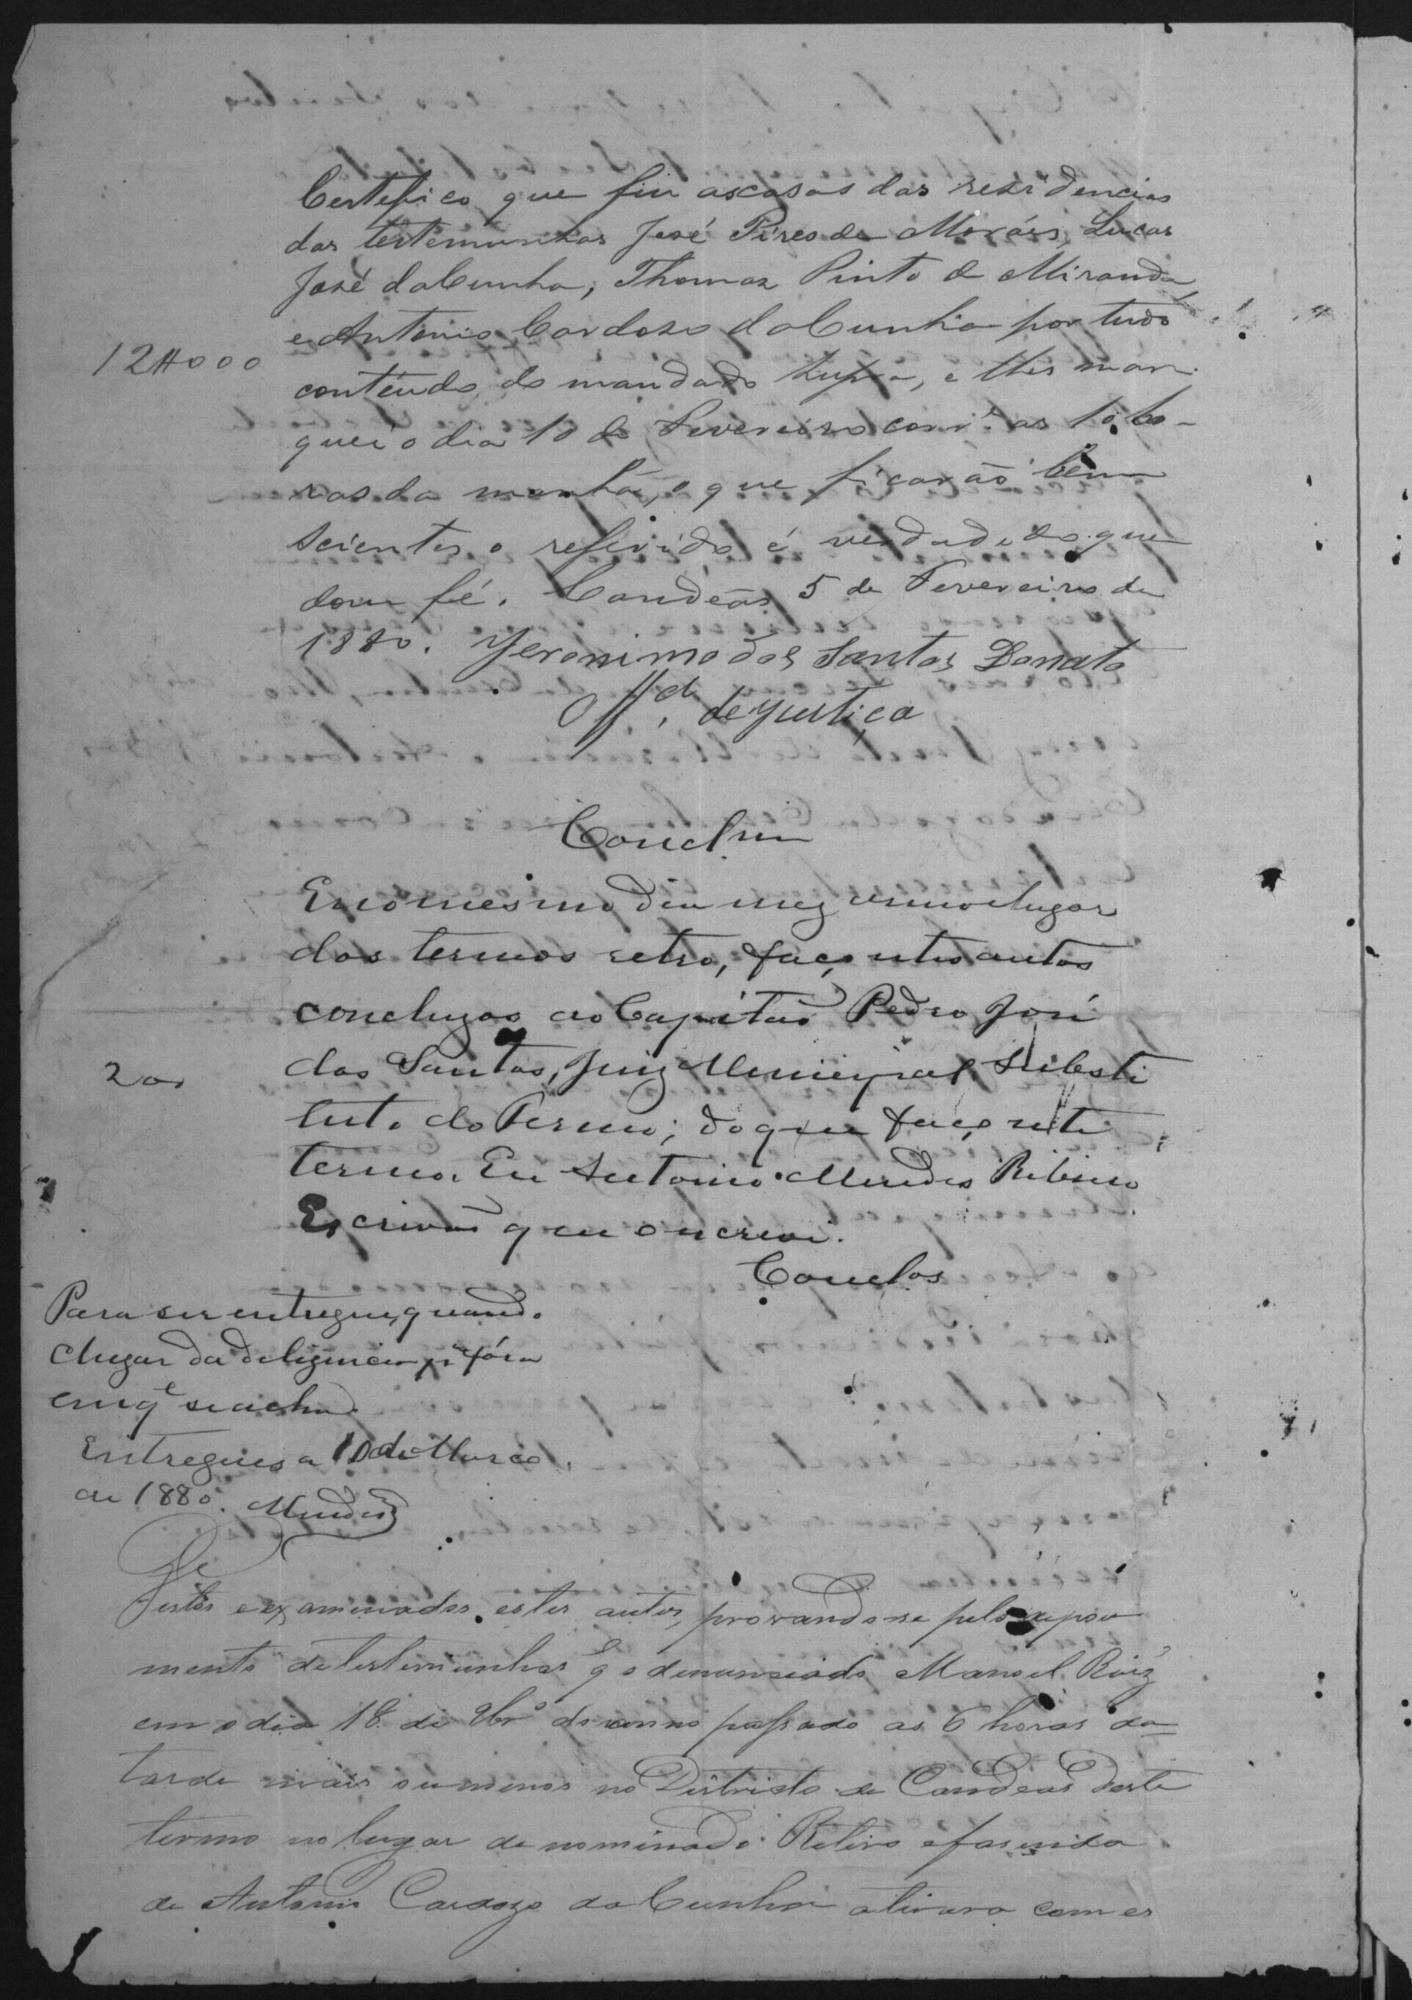 Certefico que fiu ascasas das rezidencias
das testemunhas José Pires de Moráis, Lucas
José da Cunha, Thomaz Pinto de Miranda
e Antonio Cardozo da Cunha por tudo
12$000
conteúdo do mandado supra, e lhes mar-
quei o dia 10 de Fevereiro corr.e as 10 ho-
ras da manhã, o que ficarão bem
scientes o referido é verdade do que
dou fé. Candêas 5 de Fevereiro de
1880. Jeronimo dos Santos Donato
Off.al de justiça
Conclum
Em o mesmo dia mez anno e lugar
dos termos retro, faço estes autos
concluzos ao Capitão Pedro José
dos Santos, Juiz Municipal Subesti
200
tuto do Termo; do que faço este
termo. Eu Antonio Mendes Ribeiro
Escrivão que o escrevi.
Conclos
Para ser entregue, quando
chegar da deligencia p.a fóra
em q.e se acha.
Entregues a 10 de Março
de 1880. Mendes
Vistos e examinados estes autos, provando-se pelo depoi
mento de testemunhas q̃ o denunciado Manoel Roiz
em o dia 18 de 9br.o do anno passado as 6 horas da
tarde mais ou menos no Districto de Candeas deste
termo no lugar denominado Retiro e fasenda
de Antonio Cardozo da Cunha atirara com es